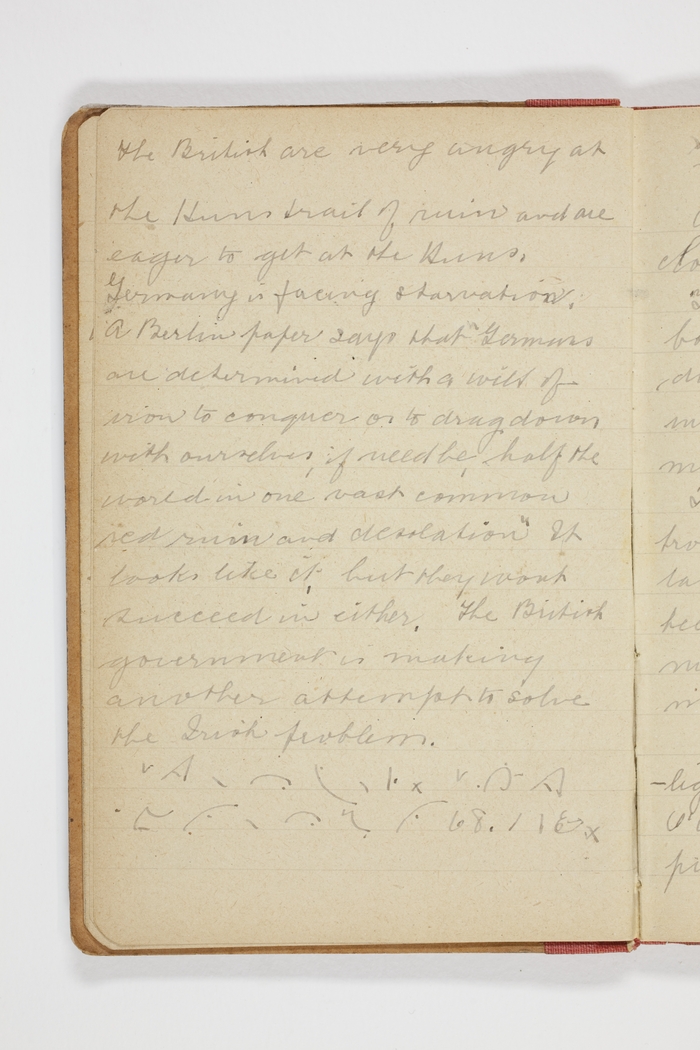 the British are very angry at
the Huns trail of ruin and are
eager to get at the Huns.
Germany is facing starvation.
A Berlin paper says that "Germans
are determined with a will of
iron to conquer or to drag down
with ourselves, if need be, half the
world in one vast common
red ruin and desolation" It
looks like it, but they wont
succeed in either. The British
government is making
another attempt to solve
the Irish problem.
68.
clo
bo
d
m
m
tro
la
bee
m
m
-lig
pi